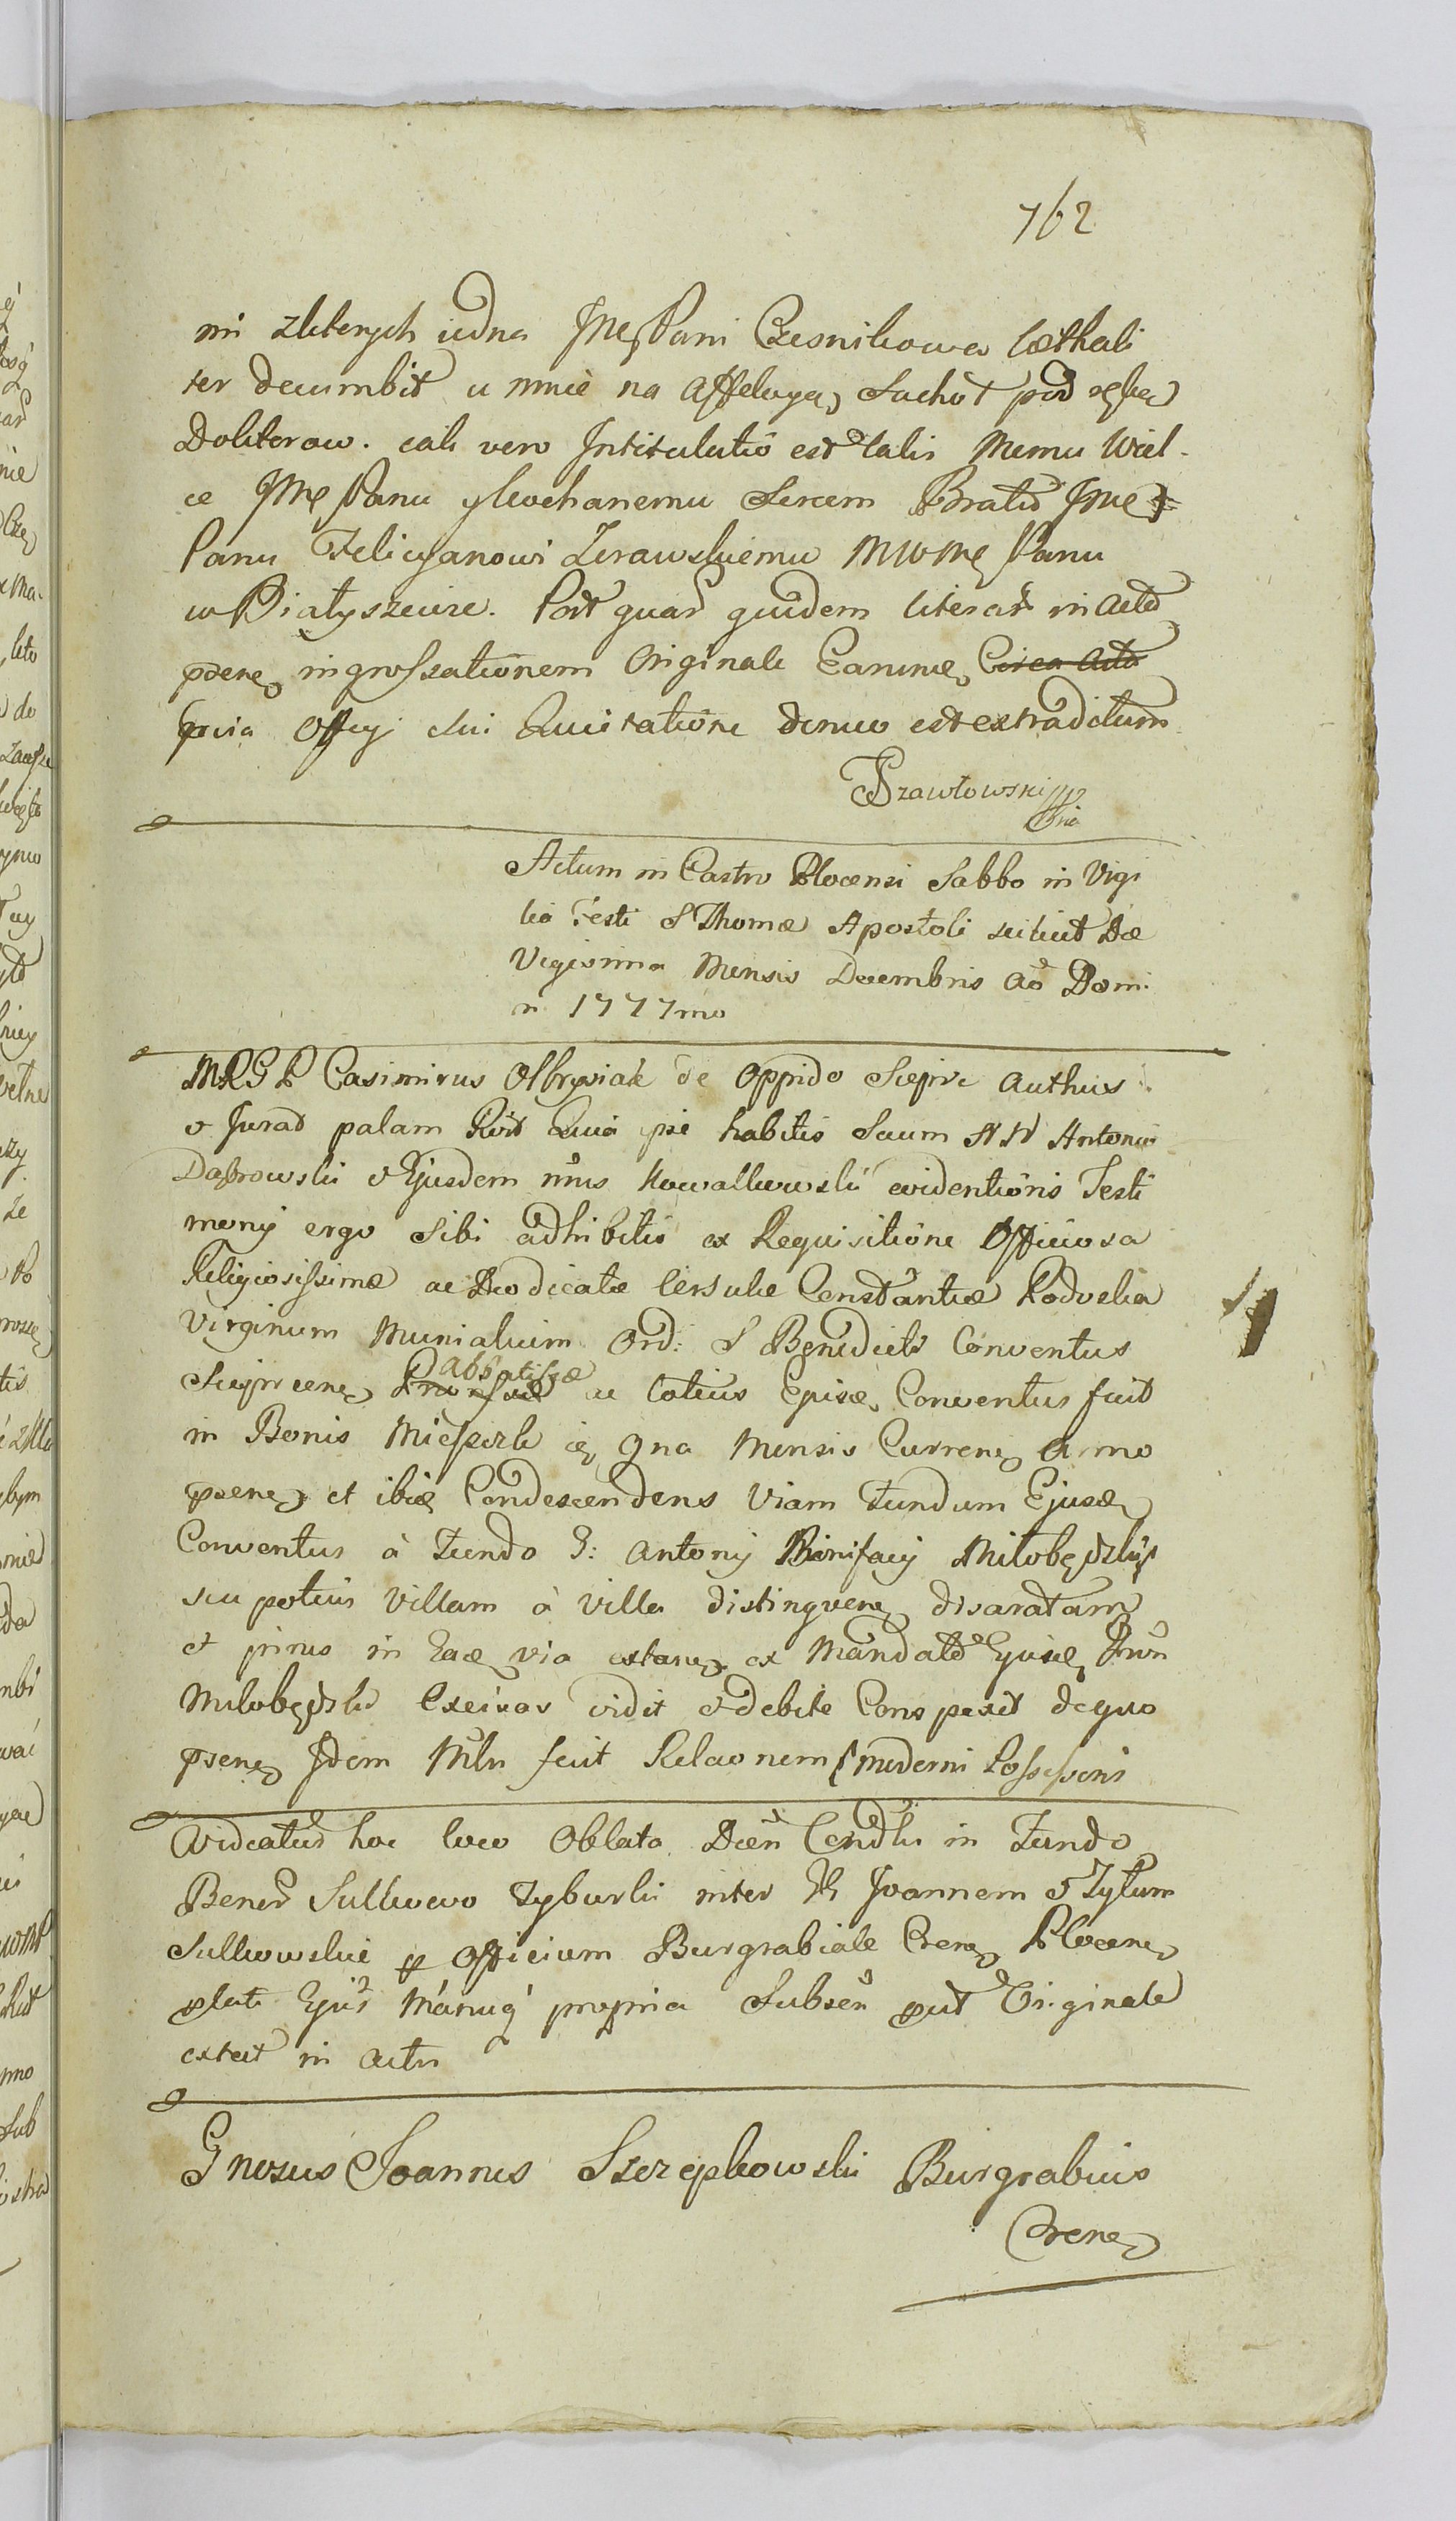 762
mi z ktorych iedna JMę Pani Czesnikowa læthali
ter decumbit u mnie na affekcyą Suchot pod ręką
Doktorow. cali vero Intitulatio est talis Memu Wiel-
ce JMę Panu y kochanemu Sercem Bratu JMę
Panu Felicyanowi Zurawskiemu MWMę Panu
w Białyszewie. Post quar quidem literar in Acta
psene ingrossationem Originale Earund Circa Acta
Quia Officij sui Quietatione denuo est extraditum
Szawłowski
Actum in Castro Plocensi Sabbo in Vigi
lia Festi S Thomæ Apostoli scilicet Die
Vigesima Mensis Decembris Ao Domi
ni 1777mo
MRGP Casimirus Olbrysiak de Oppido Sieprc Authus
et Jurat palam Rvit Quia ipse habitis Secum NN Antonio
Dąbrowski et Ejusdem nnis Kowalkowski evidentioris Testi
monij ergo Sibi adhibitis ex Requisitione Officiosa
Religiosissimæ ac Deo dicatæ Ursulæ Constantiæ Rodvelia
Virginum Monialium Ord: S Benedicti Conventus
Sieprcene Abbatissæ ac totius Ejusce Conventus fuit
in Bonis Mieszczk 9na Mensis Currene Anno
psene et ibiq Condescendens Viam Fundum Ejusd
Conventus à Fundo G: Antonij Bonifacij Miłobędzkij
seu potius Villam à Villa distinguene disaratam
et pinus in Ead via extane ex Mandato Ejusd
Miłobędzki Exeisas vidit et debite Conspexit de quo
psene Idem Mltr fecit Relaonem moderni Possessoris
Videatur hoc loco Oblata Dcen Condlis in Fundo
Benor Sulkowo Zyburki inter GG Joannem et Tytum
Sulkowskie p Officium Burgrabiale Crene Plocene
plati Ejus Manuq propria Subsen put Originale
extat in actis
Gnosus Joannes Szczepkowski Burgrabius
Crene